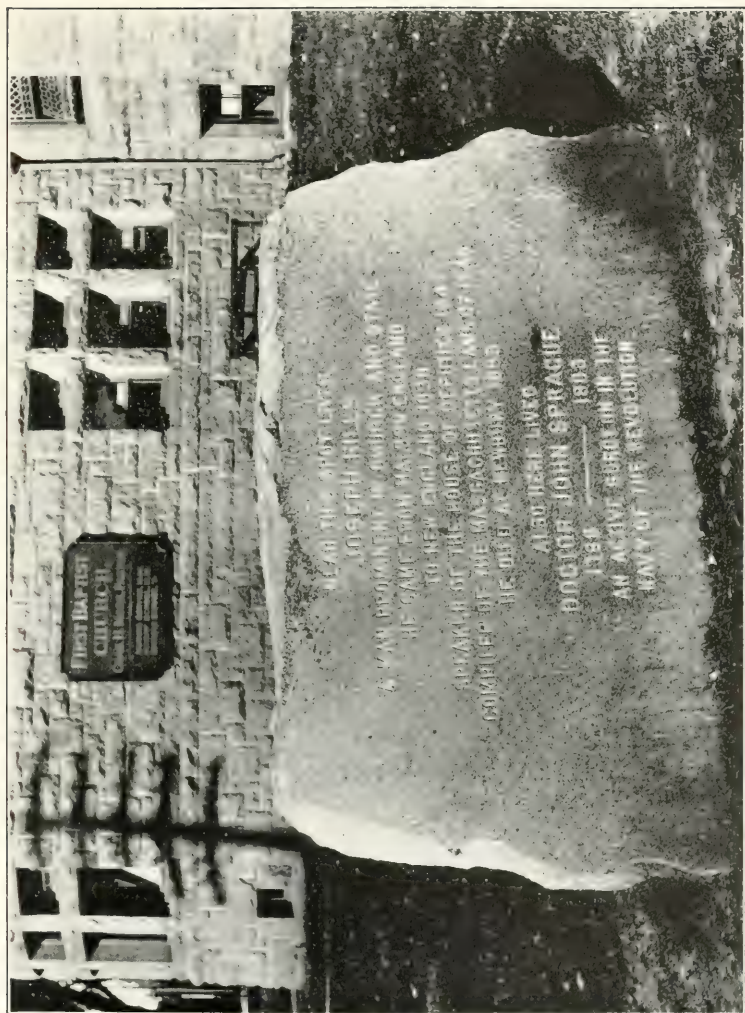 FIRST BAPTIST
CHURCH
NEAR THIS SPOT LIVED
JOSEPH HILLS
A MAN PROMINENT IN CHURCH AND STATE
HE CAME FROM MALDEN ENGLAND
TO NEW ENGLAND 1638
SPEAKER OF THE HOUSE OF DEPUTIES
COMPILER OF THE MASSACHUSETTS LAWS OF
HE DIED AT NEWBURY
ALSO HERE LIVED
DOCTOR JOHN SPRAGUE
1803
AN ACTIVE SURGEON IN THE
NAVY OF THE REVOLUTION